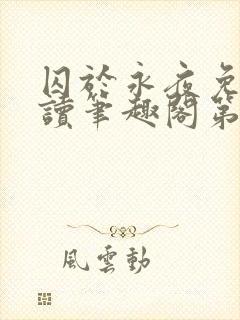 囚於永夜免
讀筆趣閣第
風雲動